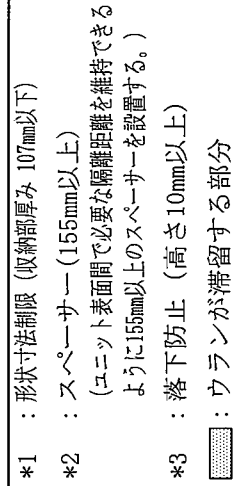 *1 ：形状寸法制限（収納部厚み 107mm以下）
*2 ：スペーサー（155mm以上）
（ユニット表面間で必要な隔離距離を維持できる
ように155mm以上のスペーサーを設置する。）
*3 ：落下防止（高さ10mm以上）
：ウランが滞留する部分